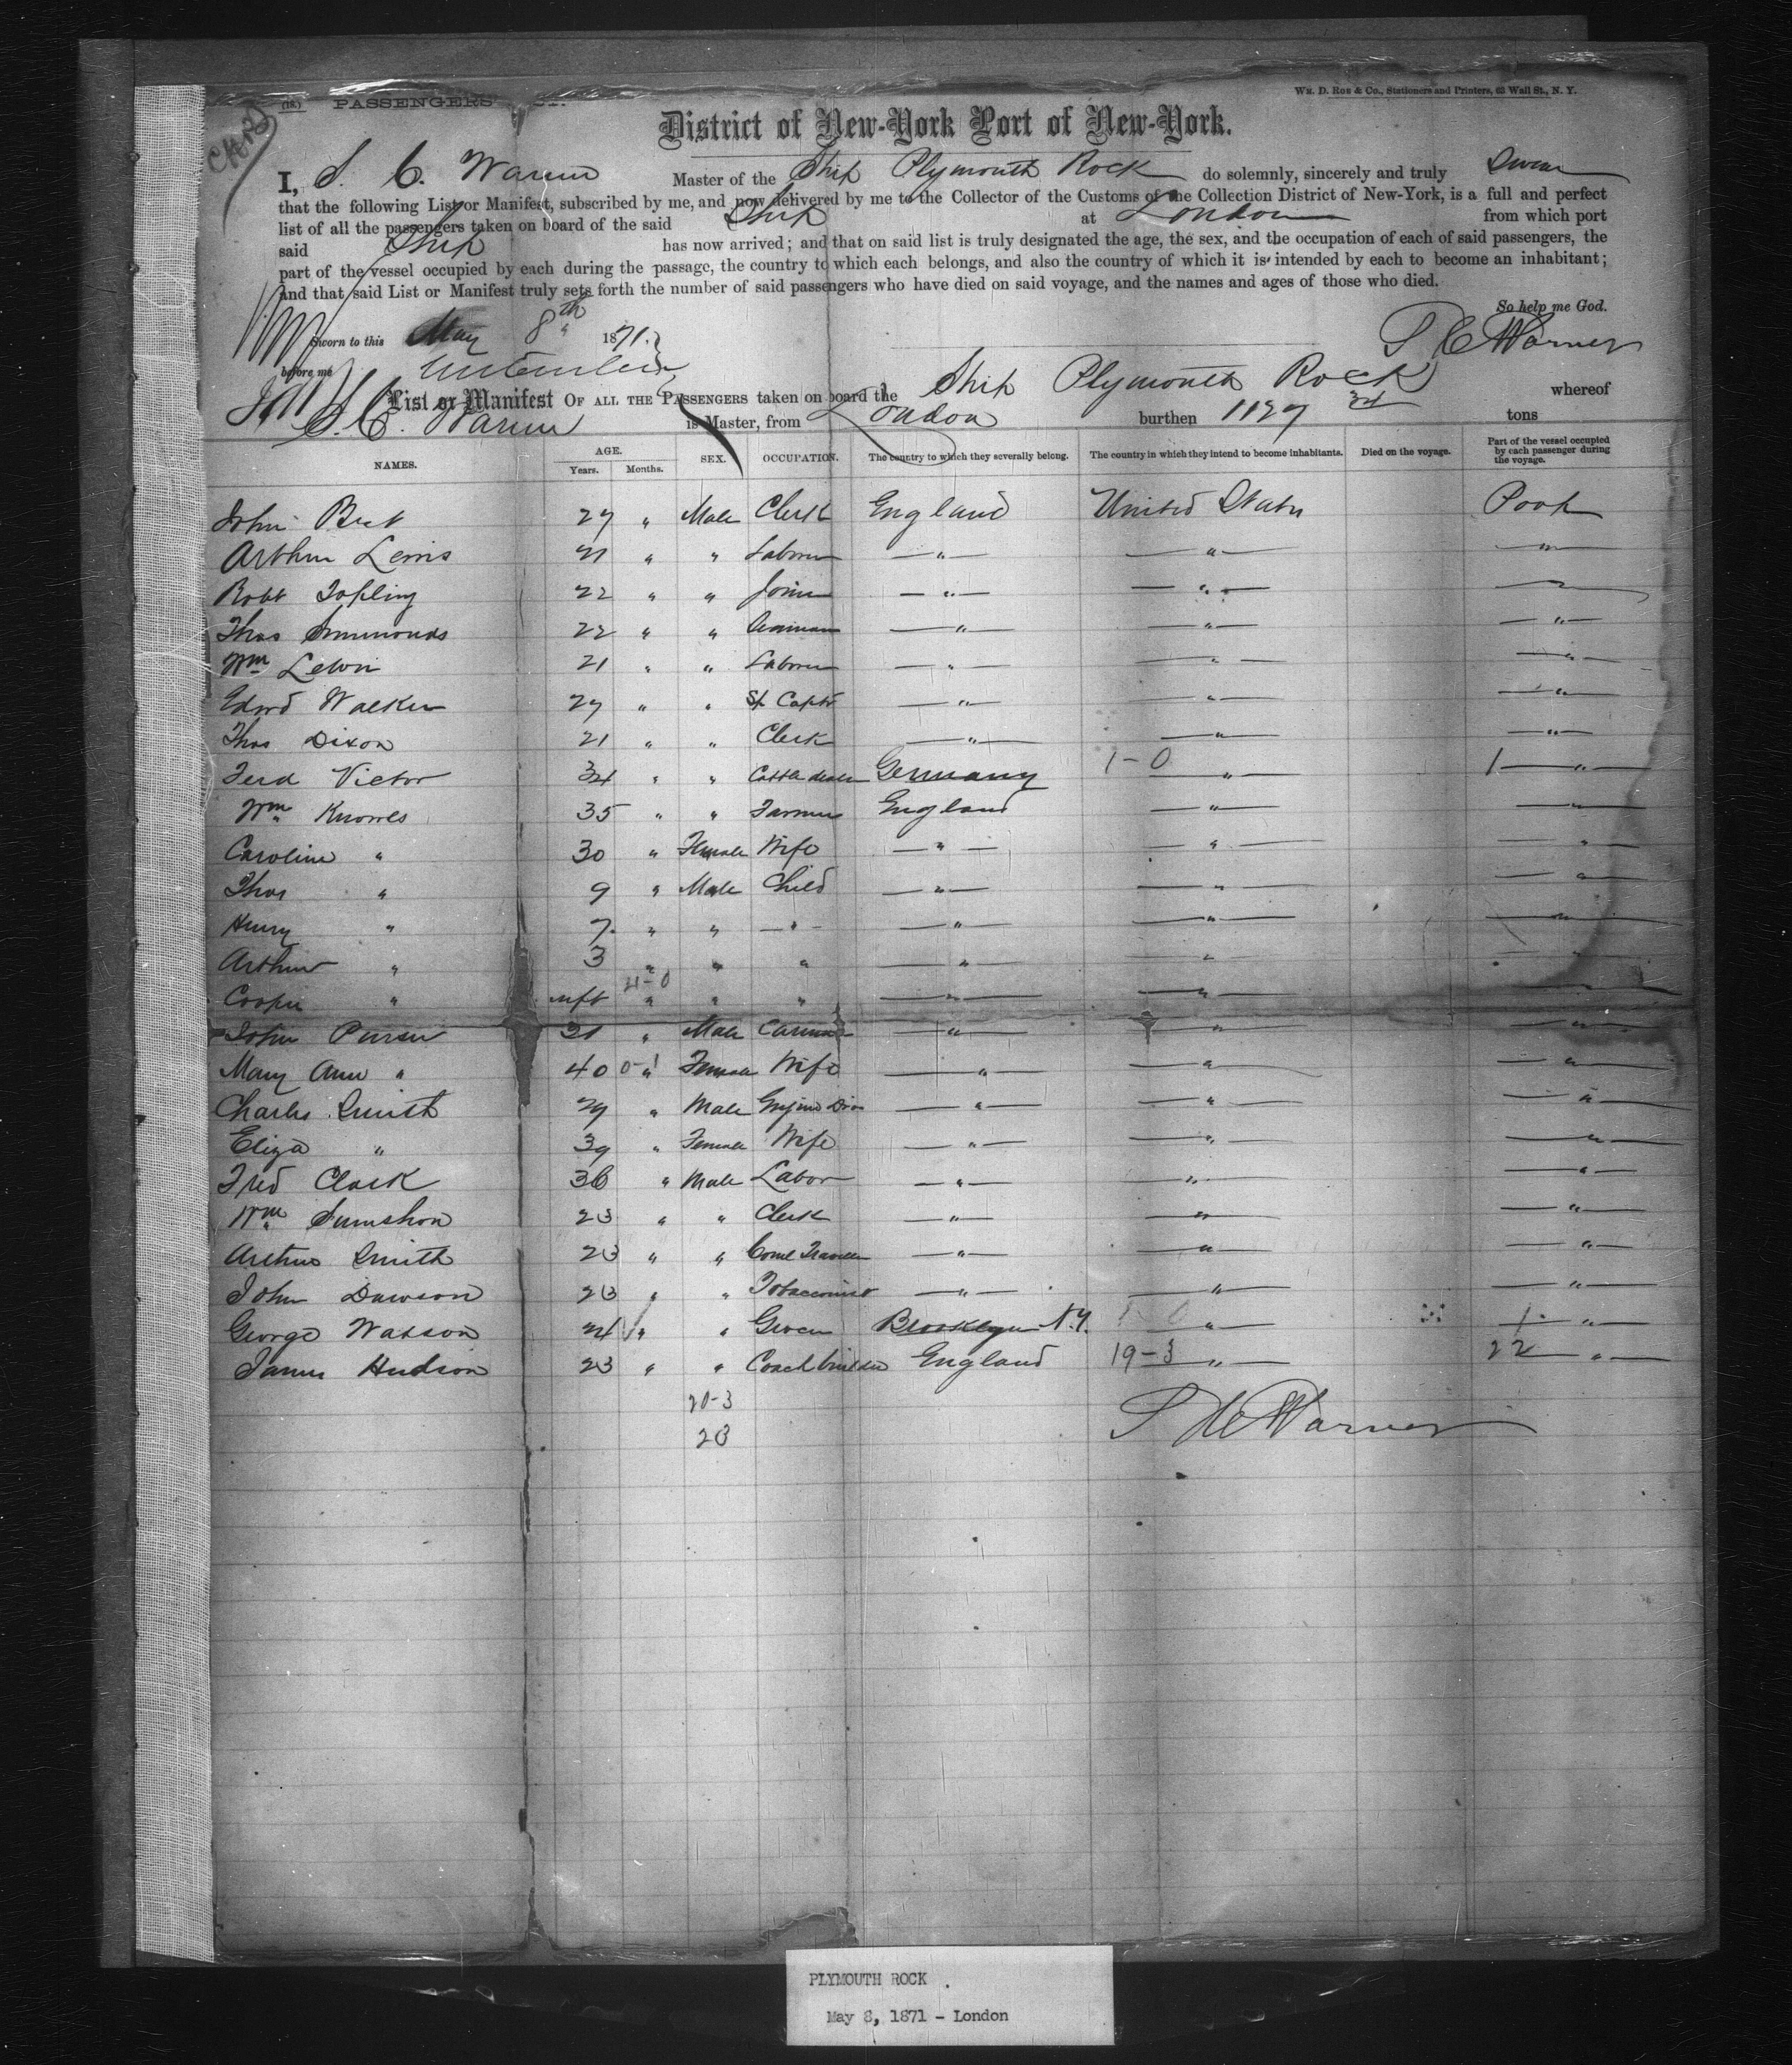 (18.) PASSENGERS
Wm. D. Roe & Co., Stationers and Printers, 63 Wall St., N. Y.
District of New-York Port of New-York.
I, S. C. Warner Master of the Ship Plymouth Rock do solemnly, sincerely and truly Swear
that the following List or Manifest, subscribed by me, and now delivered by me to the Collector of the Customs of the Collection District of New-York, is a full and perfect
list of all the passengers taken on board of the said Ship at London from which port
said Ship has now arrived; and that on said list is truly designated the age, the sex, and the occupation of each of said passengers, the
part of the vessel occupied by each during the passage, the country to which each belongs, and also the country of which it is intended by each to become an inhabitant;
and that said List or Manifest truly sets forth the number of said passengers who have died on said voyage, and the names and ages of those who died.
So help me God.
Sworn to this May 8th 1871. S C Warner
before me
List or Manifest OF ALL THE PASSENGERS taken on board the Ship Plymouth Rock whereof
S. C. Warner is Master, from London burthen 1127 tons
NAMES. AGE. Years. Months. SEX. OCCUPATION. The country to which they severally belong. The country in which they intend to become inhabitants. Died on the voyage. Part of the vessel occupied by each passenger during the voyage.
John 27 " Male Clerk England United States Poop
Arthur Lewis 21 " " Laborer — " — — " — — " —
Robt Topling 22 " " Joiner — " — — " —
Thos Simmonds 22 " " — " — — " — — " —
Wm Lewin 21 " " Laborer — " — — " — — " —
Edwd Walker 27 " " — " — — " — — " —
Thos Dixon 21 " " Clerk — " — — " — — " —
Ferd Victor 34 " " Cattle dealer Germany 1-0 — " — 1 — " —
Wm Knowles 35 " " Farmer England — " — — " —
Caroline " 30 " Female Wife — " — — " — — " —
Thos " 9 " Male Child — " — — " — — " —
Henry " 7 " " — " — — " — — " — — " —
Arthur " 3 " " " — " — — " — — " —
Cooper " inft 4-0 " " " — " — — " — — " —
John Purser " Male — " — — " — — " —
Mary Ann " 40 0-1 " Female Wife — " — — " — — " —
Charles Smith 29 " Male Engine Driv — " — — " — — " —
Eliza " 39 " Female Wife — " — — " — — " —
Fred Clark 36 " Male Labor — " — — " — — " —
Wm 23 " " Clerk — " — — " — — " —
Arthur Smith 23 " " Coml Traveller — " — — " — — " —
John Dawson 23 " " Tobacconist — " — — " — — " —
George Watson 24 " " Grocer Brooklyn N.Y. 1-0 — " — 1 — " —
James Hudson 23 " " Coachbuilder England 19-3 — " — 22 — " —
20-3
23
S C Warner
PLYMOUTH ROCK .
May 8, 1871 - London